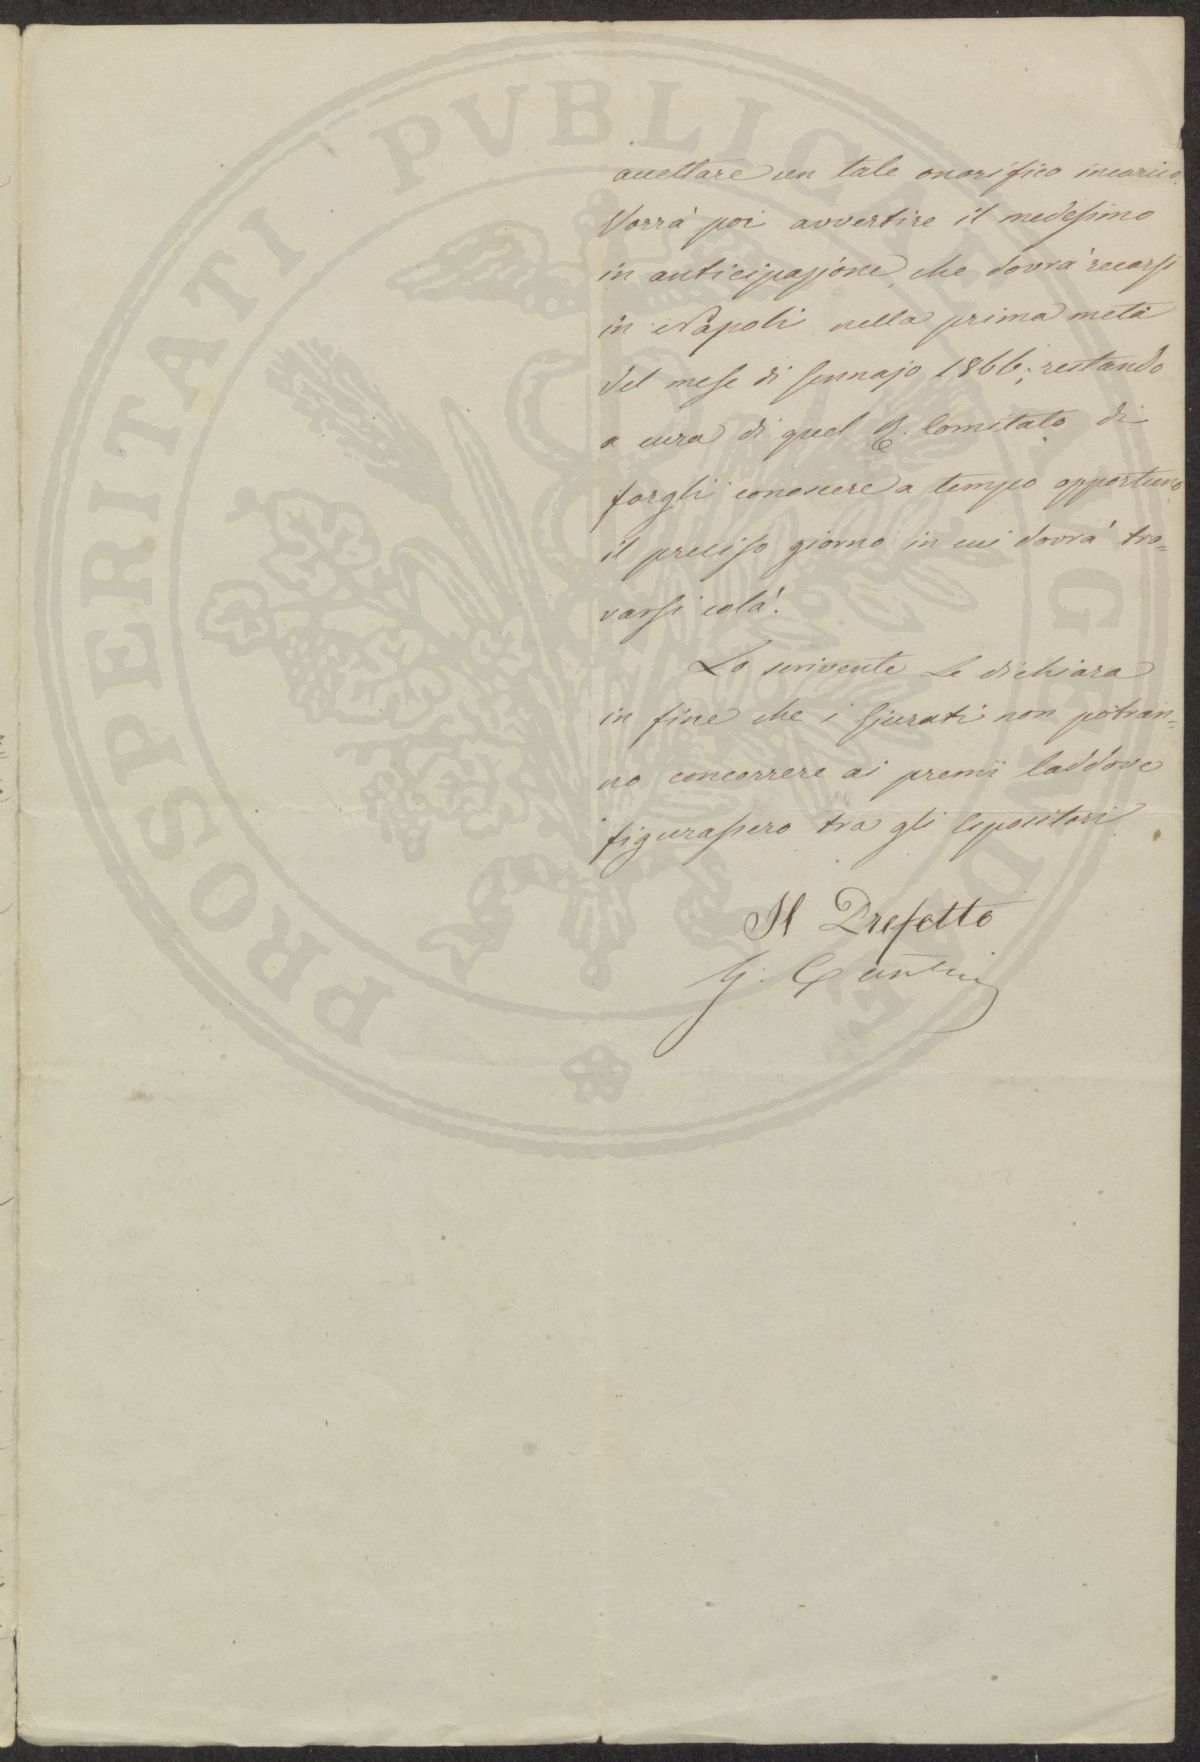 accettare un tale onorifico incarico.
Vorrà poi avvertire il medesimo
in anticipazione, che dovrà recarsi
in Napoli nella prima metà
del mese di Gennajo 1866; restando
a cura di quel R. Comitato di
fargli conoscere a tempo opportuno
il preciso giorno in cui dovrà tro=
varsi colà.
Lo scrivente Le dichiara
in fine che i Giurati non potran=
no concorrere ai premii laddove
figurassero tra gli Espositori.
Il Prefetto
G.
PROSPERITATI PVBLICAE AVGENDAE